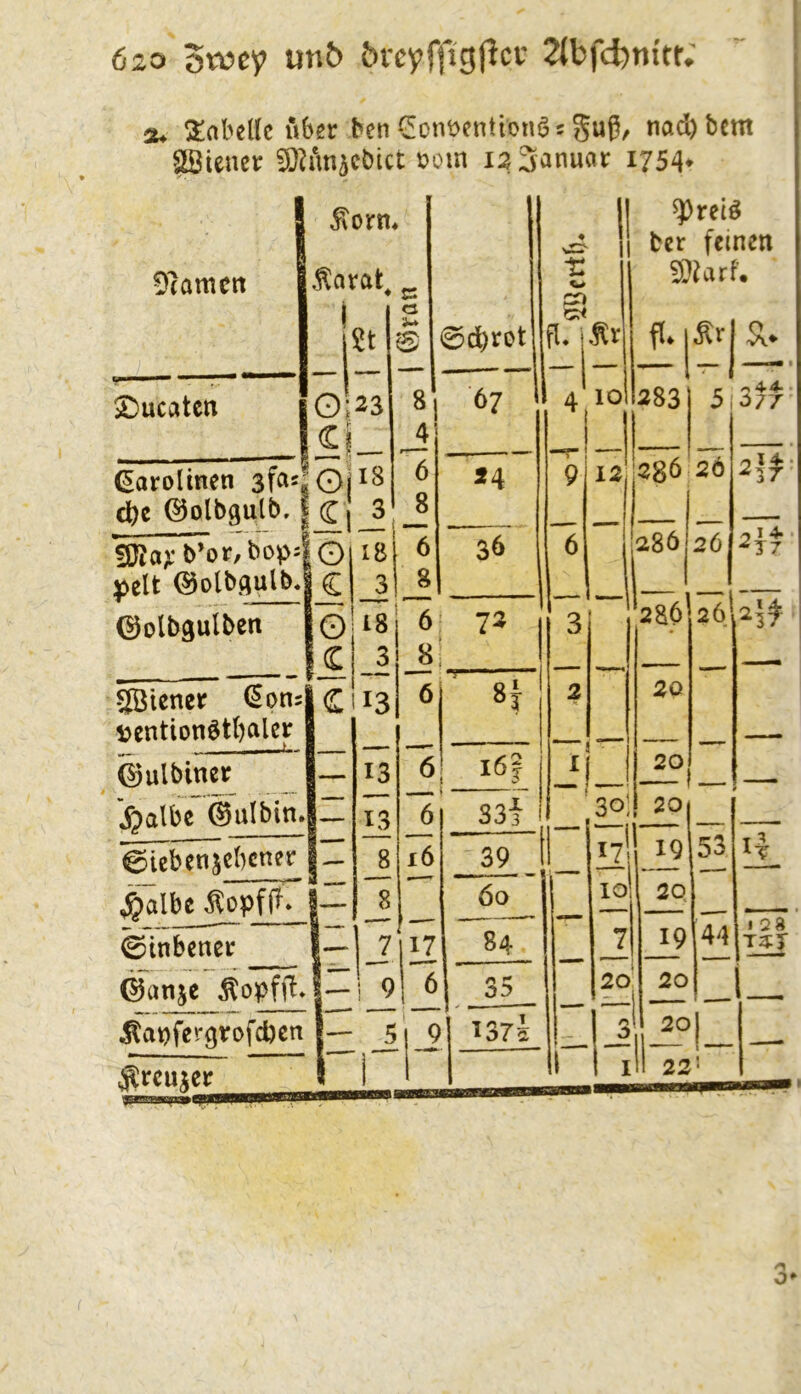 620 Zwey und dreyssigster Abschnitt.
2. Tabelle über den Conventions-Fuß, nach dem
Wiener Münzedict vom 12 Januar 1754.
Namen | Korn. Karat. | Lt | Gran | Schrot | Werth. fl. | Kr | Preis der feinen Mark. fl. | Kr | ₰.
Ducaten | ☉ 23 | 8 | 67 | 4 | 10 | 283 | 5 | 3
☾ | 4
Carolinen 3fa- | ☉ | 18 | 6 | 24 | 9 | 12 | 286 | 26 | 2
che Goldguld. | ☾ | 3 | 8
May d'or, dop- | ☉ | 18 | 6 | 36 | 6 | 286 | 26 | 2
pelt Goldguld. | ☾ | 3 | 8
Goldgulden | ☉ | 18 | 6 | 72 | 3 | 286 | 26 | 2
☾ | 3 | 8
Wiener Con- | ☾ | 13 | 6 | 8⅓ | 2 | 20
ventionsthaler
Guldiner | — | 13 | 6 | 16⅔ | 1 | 20
Halbe Guldin. | — | 13 | 6 | 33⅓ | 30 | 20
Siebenzehener | — | 8 | 16 | 39 | 17 | 19 | 53 | 1
Halbe Kopfst. | — | 8 | 60 | 10 | 20
Sindener | — | 7 | 17 | 84 | 7 | 19 | 44
Ganze Kopfst. | — | 9 | 6 | 35 | 20 | 20
Kaysergroschen | — | 5 | 9 | 137½ | 3 | 20
Kreuzer | 1 | 22
3.